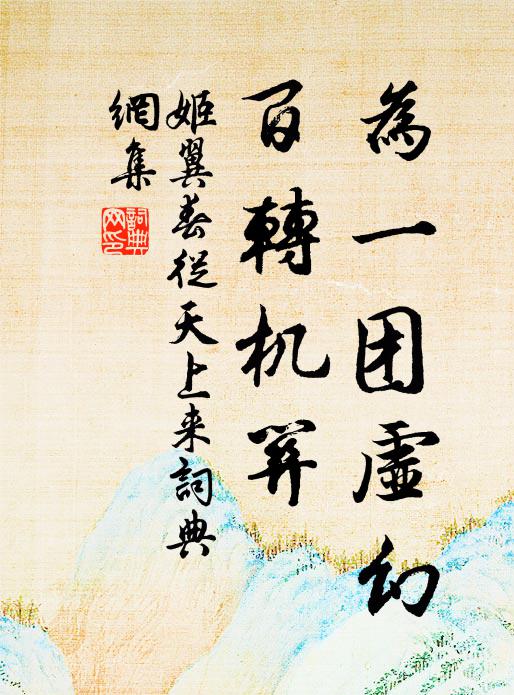 為一团虛幻
百轉机筭
姬翼春從天上来詞典
網集
詞典
网印